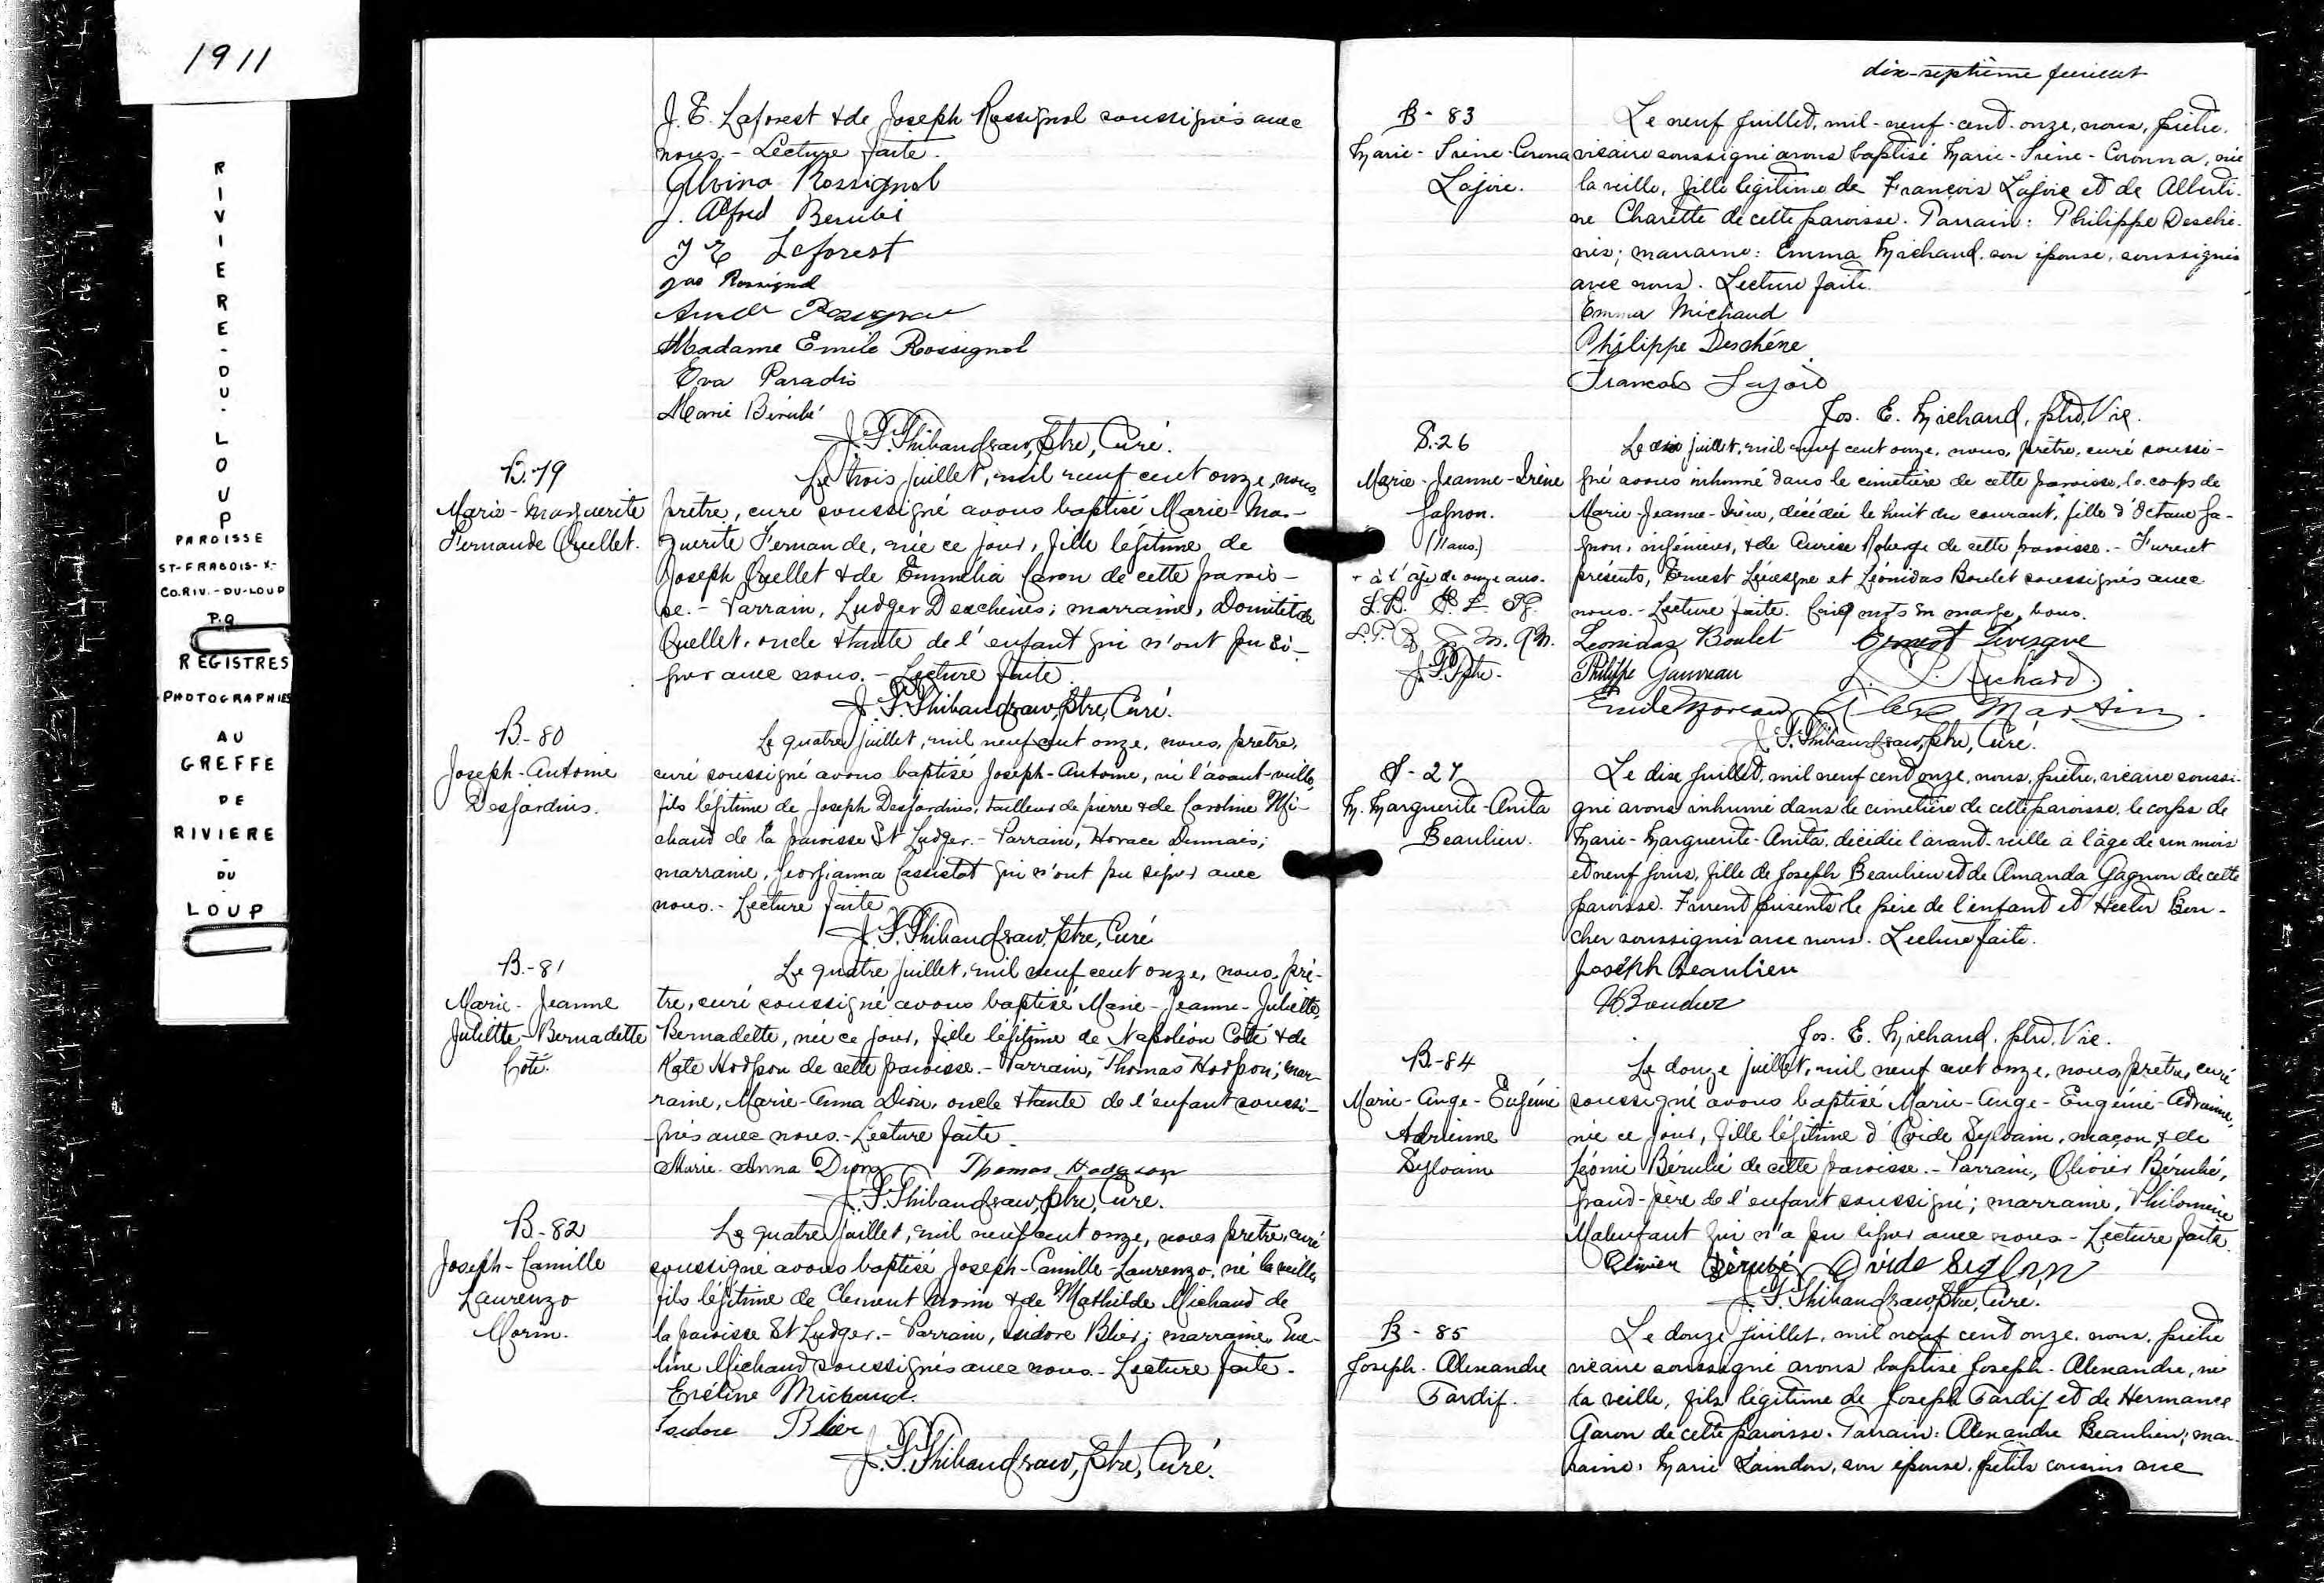 1911
RIVIERE-DU-LOUP
PAROISSE
ST-FRAÇOIS-X.-
CO.RIV.-DU-LOUP
P.Q
REGISTRES
PHOTOGRAPHIES
AU
GREFFE
DE
RIVIERE
-
DU
-
LOUP
J. E. Laforest & de Joseph Rossignol soussignés avec
nous. - Lecture faite.
Alvina Rossignol
J. Alfred Berubé
J E Laforest
Jos Rossignol
Madame Emile Rossignol
Eva Paradis
Marie Bérubé
Ptre, Curé.
B.79
Marie-Marguerite
Fernande Ouellet.
Le trois juillet, mil neuf cent onze, nous,
prêtre, curé soussigné avons baptisé Marie-Mar-
guerite Fernande, née ce jour, fille légitime de
Joseph Ouellet & de Emmélia Caron de cette parois-
se. - Parrain, Ludger Deschènes; marraine, Domitilde
Ouellet, oncle & tante de l'enfant qui n'ont pu si-
gner avec nous. - Lecture faite.
Ptre, Curé.
B-80
Joseph-Antoine
Desjardins.
Le quatre juillet, mil neuf cent onze, nous, prêtre,
curé soussigné avons baptisé Joseph-Antoine, né l'avant-veille,
fils légitime de Joseph Desjardins, tailleur de pierre & de Caroline Mi-
chaud de la paroisse St Ludger. - Parrain, Horace Dumais;
marraine, Georgianna Cassistat qui n'ont pu signer avec
nous. - Lecture faite
Ptre, Curé
B.-81
Marie-Jeanne
Juliette-Bernadette
Coté.
Le quatre juillet, mil neuf cent onze, nous, prê-
tre, curé soussigné avons baptisé Marie-Jeanne-Juliette,
Bernadette, née ce jour, fille légitime de Napoléon Coté & de
Kate Hodgson de cette paroisse. - Parrain, Thomas Hodgson; mar-
raine, Marie-Anna Dion, oncle & tante de l'enfant soussi-
gnés avec nous. - Lecture faite.
Marie-Anna Dion Thomas Hodgson
Ptre, Curé.
B-82
Joseph-Camille
Laurenzo
Morin.
Le quatre juillet, mil neuf cent onze, nous prêtre, curé
soussigné avons baptisé Joseph-Camille-Laurenzo, né la veille,
fils légitime de Clement Morin & de Mathilde Michaud de
la paroisse St Ludger. - Parrain, Isidore Blier; marraine, Eve-
line Michaud soussignés avec nous. - Lecture faite.
Eveline Michaud.
Isidore Blier
Ptre, Curé.
dix-septième feuillet
B-83
Marie-Irène-Corona
Lajoie.
Le neuf juillet, mil-neuf-cent-onze, nous, prêtre,
vicaire soussigné avons baptisé Marie-Irène-Coronna, née
la veille, fille légitime de François Lajoie et de Alberti-
ne Charette de cette paroisse. Parrain: Philippe Deschê-
nes; marraine: Emma Michaud, son épouse, soussignés
avec nous. Lecture faite.
Emma Michaud
Philippe Deschêne
Francois Lajoie
Jos. E. Michaud, ptre, Vic.
S.26
Marie-Jeanne-Irène
Gagnon.
(11 ans.)
+ à l'âge de onze ans.
Le dix juillet, mil neuf cent onze, nous, prêtre, curé soussi-
gné avons inhumé dans le cimetière de cette paroisse, le corps de
Marie-Jeanne-Irène, décédée le huit du courant, fille d'Octave Ga-
gnon, ingénieur, & de Aurise Roberge de cette paroisse. - Furent
présents, Ernest Lévesque et Léonidas Boulet soussignés avec
nous. - Lecture faite. Cinq mots en marge, bons.
Leonidas Boulet Ernest Livesque
Philippe Gauvreau Richard.
Emile Moreau Alex Martin.
Ptre, Curé.
S-27
M. Marguerite-Anita
Beaulieu.
Le dix juillet, mil neuf cent onze, nous, prêtre, vicaire soussi-
gné avons inhumé dans le cimetière de cette paroisse, le corps de
Marie-Marguerite-Anita, décédée l'avant-veille à l'âge de un mois
et neuf jours, fille de Joseph Beaulieu et de Amanda Gagnon de cette
paroisse. Furent présents le père de l'enfant et Hector Bou-
cher soussignés avec nous. Lecture faite.
Joseph Beaulieu
H Boucher
Jos. E. Michaud, ptre, Vic.
B-84
Marie-Ange-Eugénie
Adrienne
Sylvain
Le douze juillet, mil neuf cent onze, nous, prêtre, curé
soussigné avons baptisé Marie-Ange-Eugénie-Adrienne,
née ce jour, fille légitime d'Ovide Sylvain, maçon, & de
Léonie Bérubé de cette paroisse. - Parrain, Olivier Bérubé,
grand-père de l'enfant soussigné; marraine, Philomène
Malenfant qui n'a pu signer avec nous - Lecture faite.
Olivier Bérubé Ovide
Ptre, Curé.
B-85
Joseph-Alexandre
Tardif.
Le douze juillet, mil neuf cent onze, nous, prêtre
vicaire soussigné avons baptisé Joseph-Alexandre, né
la veille, fils légitime de Joseph Tardif et de Hermance
Garon de cette paroisse. Parrain: Alexandre Beaulieu; mar-
raine: Marie Laindon, son épouse, petits cousins avec